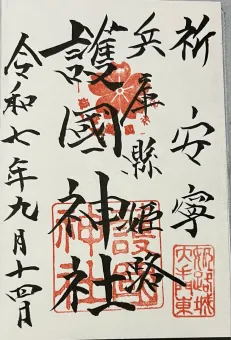 祈安寧
兵庫縣姫路
護國神社
令和七年九月十四日
姫路城
大手門東
護國
神社